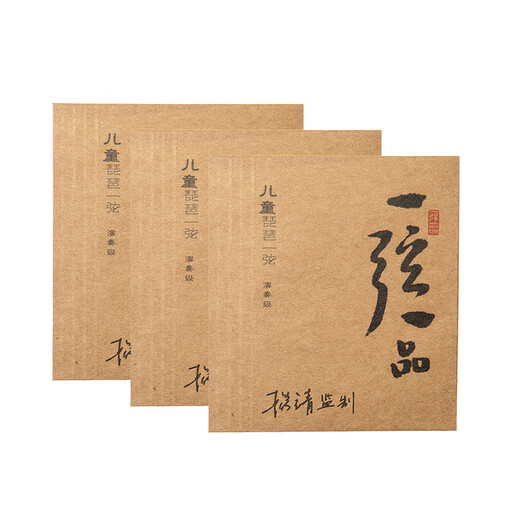 儿童琵琶一弦
演奏级
儿童琵琶一弦
演奏级
儿童琵琶一弦
演奏级
一弦一品
杨靖监制